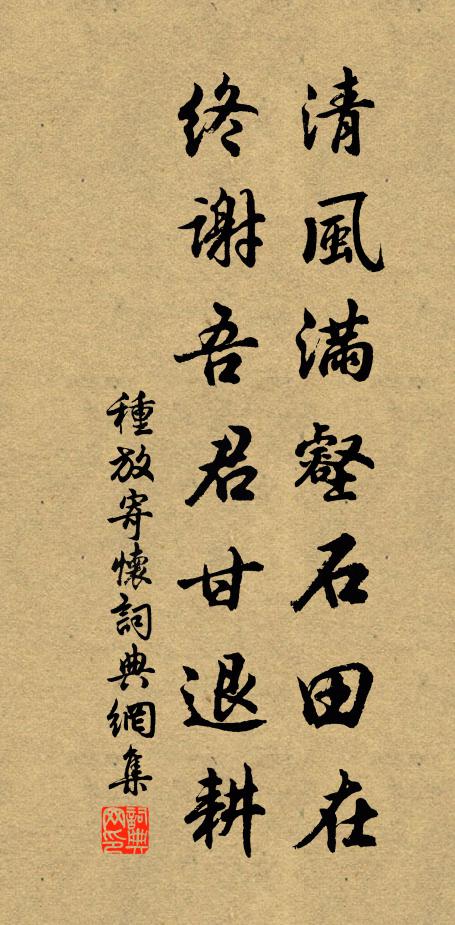 清風滿壑石田在
終謝吾君甘退耕
種放寄懷詞典網集
詞典網印